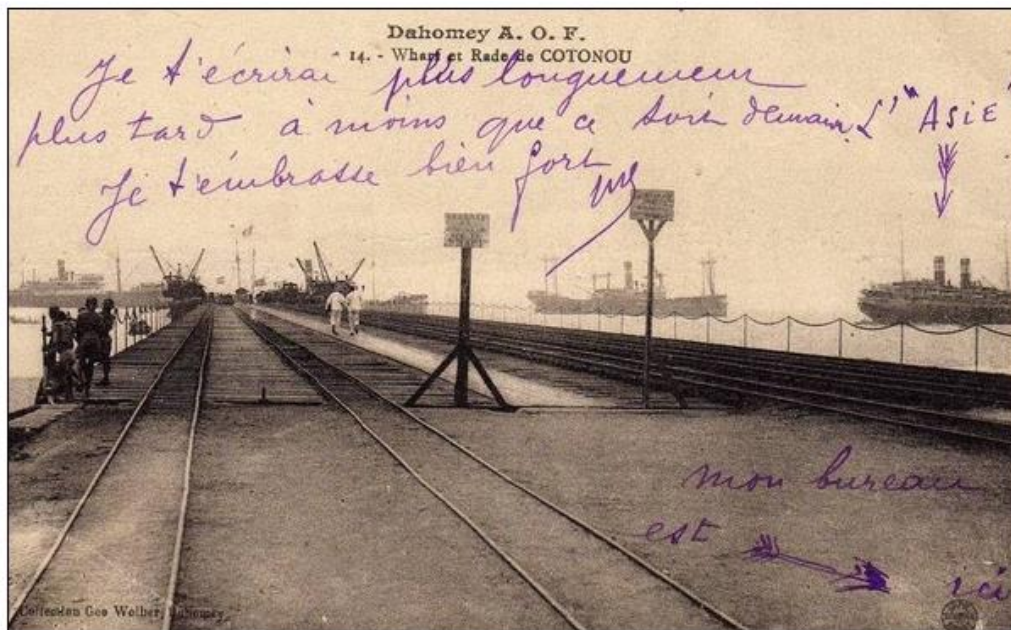 Dahomey A. O. F.
14. - Wharf et Rade de COTONOU
Je t'écrirai plus longuement
plus tard à moins que ce soit demain L'"ASIE"
Je t'embrasse bien fort
mon bureau
est ici
Collection Geo Wolber, Dahomey